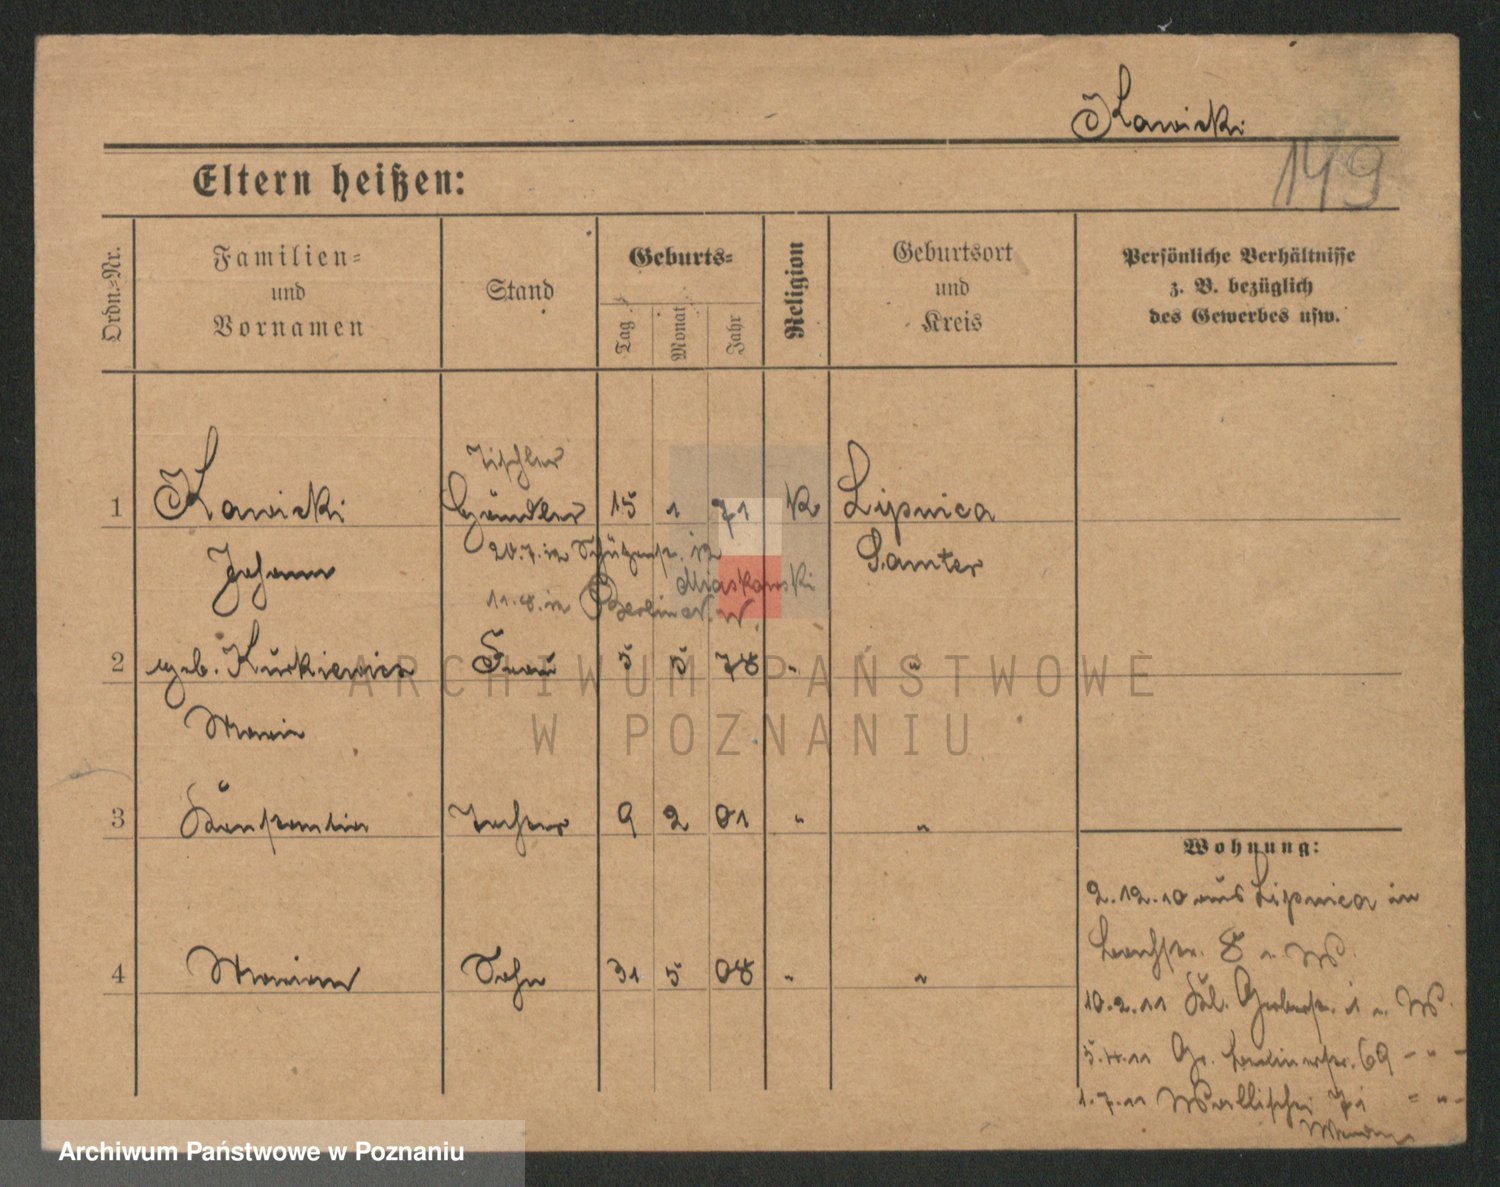 Kawicki
149
Eltern heißen:
Ordn.-Nr.
Familien-
und
Vornamen
Stand
Geburts-
Tag
Monat
Jahr
Religion
Geburtsort
und
Kreis
Persönliche Verhältnisse
z. B. bezüglich
des Gewerbes usw.
Tischler
1 Kawicki Händler 15 1 71 K Lipnica
Johann Samter
20.7. in Schützenstr. 12
Miaskowski
11.8. in Berlin N.W.
2 geb. Kurkiewicz Frau 5 5 78 " "
Maria
3 Konstantin Tochter 9 2 01 " "
4 Marian Sohn 31 5 08 " "
Wohnung:
2.12.10 aus Lipnica in
8 W.
10.2.11 Gerberstr. W.
5.4.11 Gr. Berlinerstr. 69 - " -
1.7.11 Wallischei - " -
ARCHIWUM PAŃSTWOWE
W POZNANIU
Archiwum Państwowe w Poznaniu